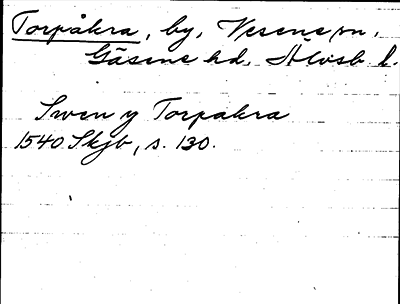 Torpåkra, by, Vesene sn,
Gäsene hd, Älvsb l.
Swen y Torpakra
1540 Skjb, s. 130.